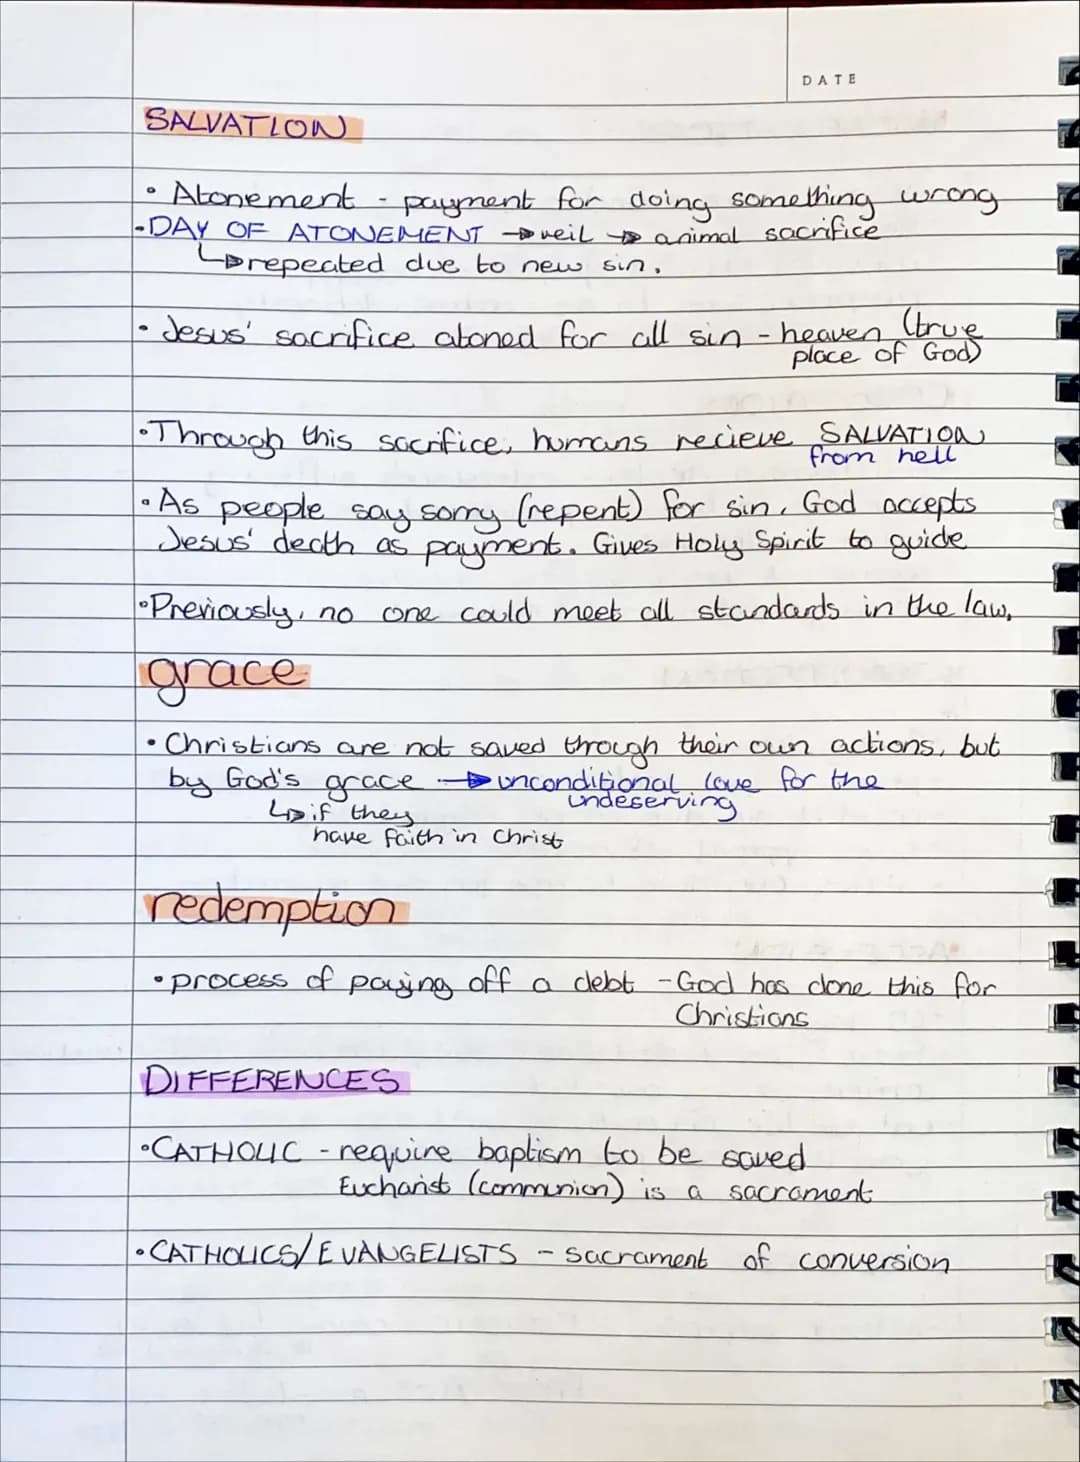 DATE
SALVATION
• Atonement - payment for doing something wrong
- DAY OF ATONEMENT → veil → animal sacrifice
↳ repeated due to new sin.
• Jesus' sacrifice atoned for all sin - heaven (true
place of God)
• Through this sacrifice, humans recieve SALVATION
from hell
• As people say sorry (repent) for sin, God accepts
Jesus' death as payment. Gives Holy Spirit to guide
• Previously, no one could meet all standards in the law,
grace
• Christians are not saved through their own actions, but
by God's grace → unconditional love for the
undeserving
↳ if they
have faith in Christ
redemption
• process of paying off a debt - God has done this for
Christians
DIFFERENCES
• CATHOLIC - require baptism to be saved
Eucharist (communion) is a sacrament
• CATHOLICS/EVANGELISTS - sacrament of conversion